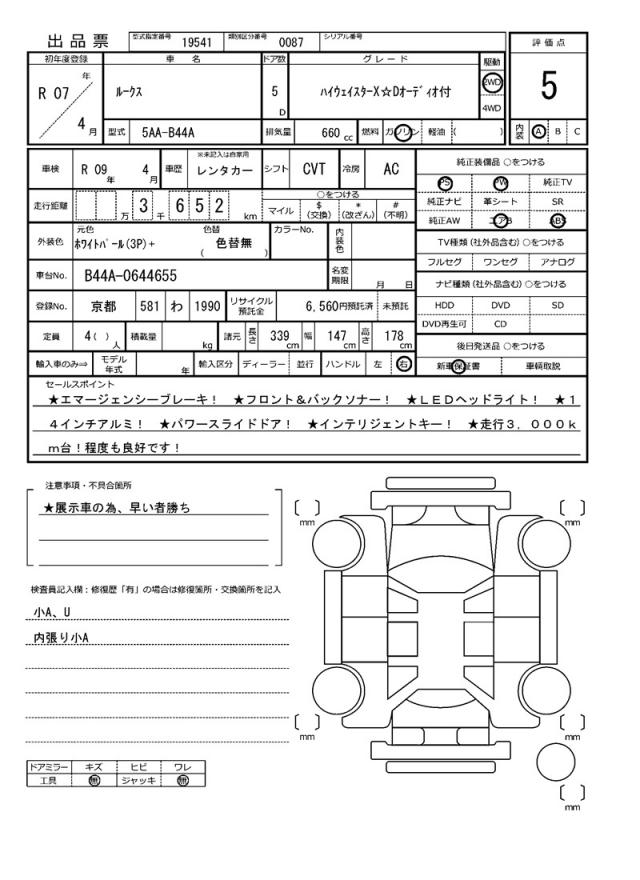 出品票
型式指定番号 19541 類別区分番号 0087 シリアル番号
評価点
5
内装 A B C
初年度登録 車名 ドア数 グレード 駆動
R 07年 4月 ルークス 5D ハイウェイスターX☆Dオーディオ付 2WD
4WD
型式 5AA-B44A 排気量 660 cc 燃料 ガソリン 軽油 ( )
車検 R 09年 4月 車歴 ※未記入は自家用 レンタカー シフト CVT 冷房 AC
走行距離 万 3 千 6 5 2 km ○をつける
マイル $(交換) *(改ざん) #(不明)
外装色 元色 ホワイトパール(3P)+ 色替 ( 色替無 ) カラーNo. 内装色
車台No. B44A-0644655 名変期限 月 日
登録No. 京都 581 わ 1990 リサイクル預託金 6,560円預託済 未預託
定員 4( )人 積載量 kg 諸元 長さ 339cm 幅 147cm 高さ 178cm
輸入車のみ⇒ モデル年式 年 輸入区分 ディーラー 並行 ハンドル 左 右
純正装備品 ○をつける
PS PW 純正TV
純正ナビ 革シート SR
純正AW エアB ABS
TV種類 (社外品含む) ○をつける
フルセグ ワンセグ アナログ
ナビ種類 (社外品含む) ○をつける
HDD DVD SD
DVD再生可 CD
後日発送品 ○をつける
新車保証書 車輌取説
セールスポイント
★エマージェンシーブレーキ! ★フロント&バックソナー! ★LEDヘッドライト! ★1
4インチアルミ! ★パワースライドドア! ★インテリジェントキー! ★走行3,000k
m台!程度も良好です!
注意事項・不具合箇所
★展示車の為、早い者勝ち
検査員記入欄:修復歴「有」の場合は修復箇所・交換箇所を記入
小A、U
内張り小A
ドアミラー キズ ヒビ ワレ
工具 無 ジャッキ 無
mm
mm
mm
mm
mm